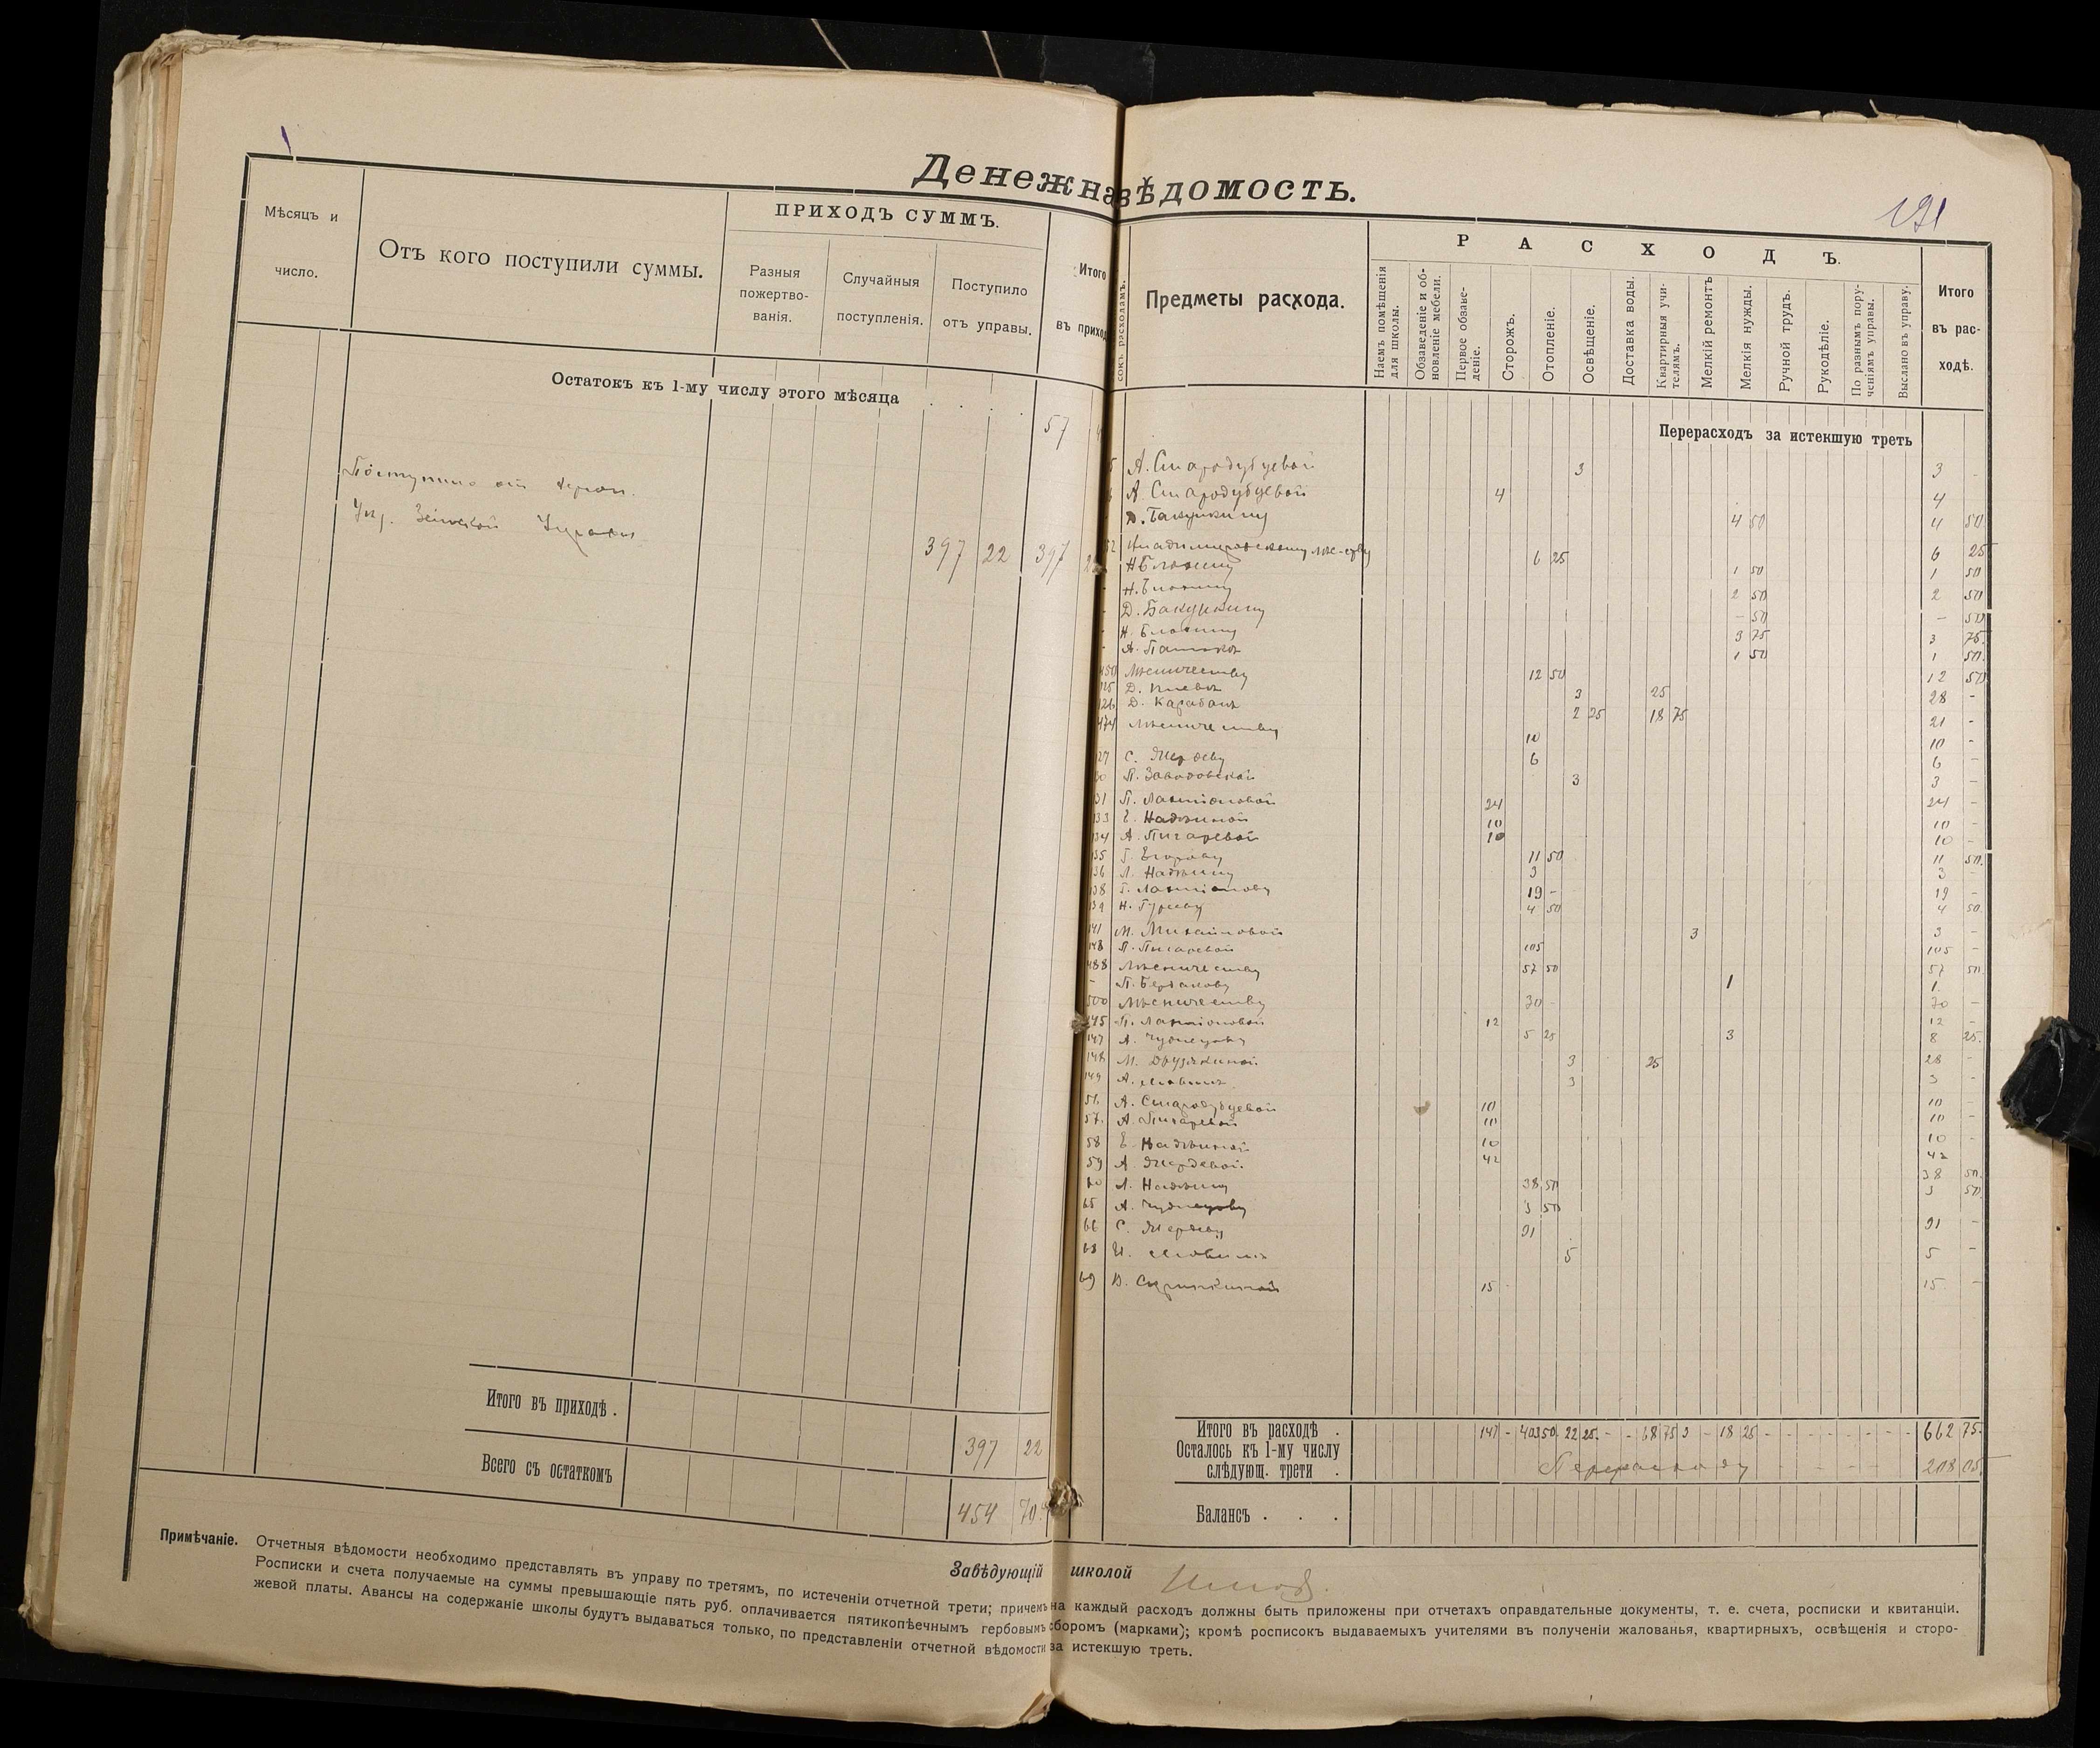 Денежная вѣдомость.
191
Мѣсяцъ и число.
Отъ кого поступили суммы.
ПРИХОДЪ СУММЪ.
Разныя пожертво-
ванія.
Случайныя
поступленія.
Поступило
отъ управы.
Итого
въ приход
Остатокъ къ 1-му числу этого мѣсяца
57
Поступило от
Уѣз. Земской Управы
397 22 397
Итого въ приходѣ .
397 22
Всего съ остаткомъ
454 70
Предметы расхода.
РАСХОДЪ.
Наемъ помѣщенія
для школы.
Обзаведеніе и об-
новленіе мебели.
Первое обзаве-
деніе.
Сторожъ.
Отопленіе.
Освѣщеніе.
Доставка воды.
Квартирныя учи-
телямъ.
Мелкій ремонтъ
Мелкія нужды.
Ручной трудъ.
Рукодѣліе.
По разнымъ пору-
ченіямъ управы.
Выслано въ управу.
Итого
въ рас-
ходѣ.
Перерасходъ за истекшую треть
А. Стародубцевой 3 3 -
А. Стародубцевой 4 4
4 50 4 50
6 25 6 25
Н. Блохину 1 50 1 50
Н. Блохину 2 50 2 50
Д. Бакушкину - 50 - 50
Н. Блохину 3 75 3 75
А. 1 50 1 50
Лѣсничеству 12 50 12 50
Д. 3 25 28 -
Д. Карабанъ 2 25 18 75 21 -
Лѣсничеству 10 10 -
С. Жердеву 6 6 -
П. Заводовской 3 3 -
П. Лактіоновой 24 24 -
Е. Надѣиной 10 10 -
А. Писаревой 10 10 -
135 Г. Егорову 11 50 11 50
136 Л. Надѣину 3 3 -
138 Г. Лактіонову 19 - 19 -
139 Н. Гурьеву 4 50 4 50
141 М. Михайловой 3 3 -
П. Писаревой 105 105 -
488 Лѣсничеству 57 50 57 50
- П. 1 1 -
500 Лѣсничеству 30 - 30 -
145 П. Лактіоновой 12 12 -
147 А. 5 25 3 8 25
148 М. 3 25 28 -
149 А. 3 3 -
А. Стародубцевой 10 10 -
57. А. Писаревой 10 10 -
58 Е. Надѣиной 10 10 -
59 А. Жердевой 42 42
60 Л. Надѣину 38 50 38 50
65 А. 3 50 3 50
66 С. Жердеву 91 91 -
68 5 5 -
69 15 15 -
Итого въ расходѣ . 147 - 403 50 22 25 - - 68 75 3 - 18 25 - - - - - - - - 662 75
Осталось къ 1-му числу
слѣдующ. трети . Перерасходу 208 05
Балансъ . . .
Завѣдующій школой
Примѣчаніе. Отчетныя вѣдомости необходимо представлять въ управу по третямъ, по истеченіи отчетной трети; причемъ на каждый расходъ должны быть приложены при отчетахъ оправдательные документы, т. е. счета, росписки и квитанціи.
Росписки и счета получаемые на суммы превышающіе пять руб. оплачивается пятикопѣечнымъ гербовымъ сборомъ (марками); кромѣ росписокъ выдаваемыхъ учителями въ полученіи жалованья, квартирныхъ, освѣщенія и сторо-
жевой платы. Авансы на содержаніе школы будутъ выдаваться только, по представленіи отчетной вѣдомости за истекшую треть.